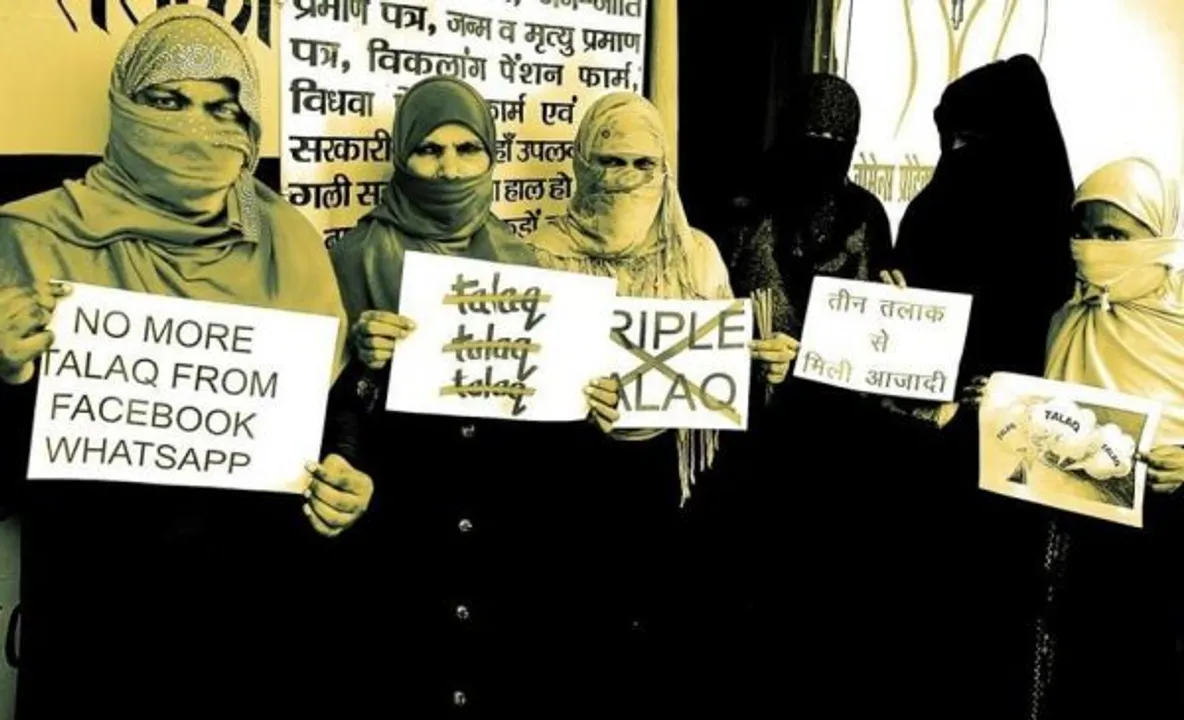 प्रमाण पत्र, जन्म व मृत्यु प्रमाण
पत्र, विकलांग पेंशन फार्म,
विधवा
एवं
सरकारी
गली
हाल हो
NO MORE
TALAQ FROM
FACEBOOK
WHATSAPP
talaq
talaq
talaq
RIPLE
ALAQ
तीन तलाक
से
मिली आजादी
TALAQ
TALAQ
TALAQ